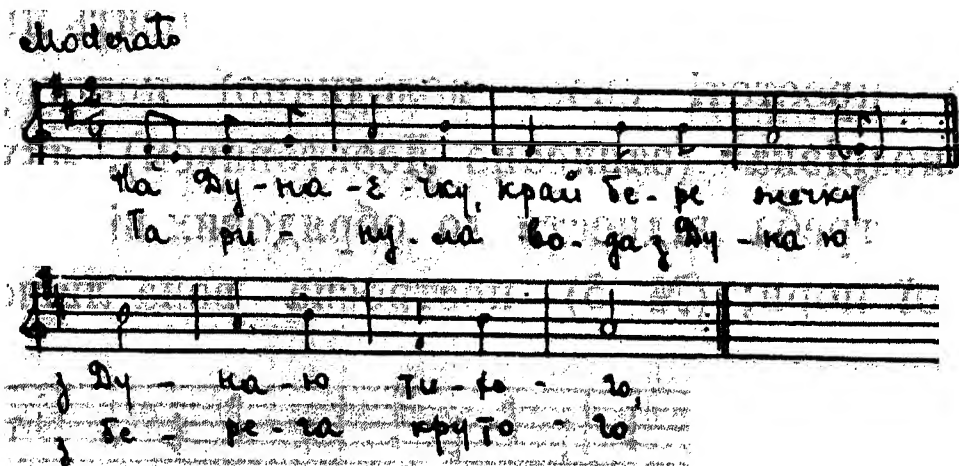 Moderato
2
На Ду-на-є-чку, край бе-ре жечку
Та ри-ну-ла во-да з Ду-на ю
з Ду-на-ю ти-хо-го,
з бе-ре-га круто-го